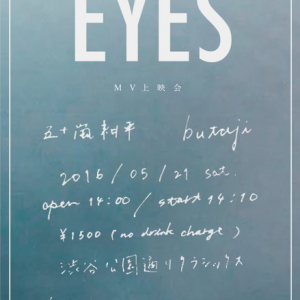 EYES
MV上映会
五十嵐耕平 butaji
2016/05/21 sat.
open 14:00 / start 14:10
¥1500 (no drink charge)
渋谷公園通りクラシックス